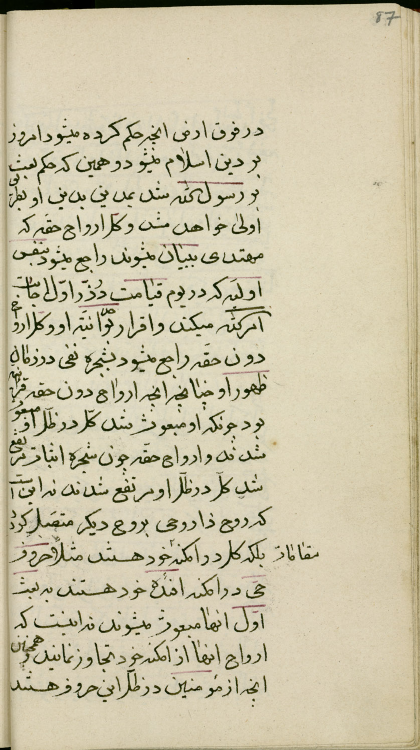 87
در فوق ارض انچه حکم کرده میشود امروز
بر دین اسلام میشود و همین که حکم بعث
بر رسول الله شد یدبنی بدینی او بطریق
اولی خواهد شد و کل ارواح حقه که
مهتدی ببیان میشوند راجع میشود بنفس
اولیه که در یوم قیامت در ذر اول اجابت
امر الله میکند و اقرار بوحدانیته او و کل ارواح
دون حقه راجع میشود بشجرهٔ نفی در زمان
ظهور او چنانچه انچه ارواح دون حقه قرانیه
بود چونکه او مبعوث شد کل در ظل او مبعوث
شدند و ارواح حقه چون شجرهٔ اثبات مرتفع
شد کل در ظل او مرتفع شدند نه اینست
که روح ذا روحی بروح دیکر متصل کردد
بلکه کل در امکنه خود هستند مثلا حروف
مقامات
حی در امکنه افئده خود هستند به بعث
اول انها مبعوث میشوند نه اینست که
ارواح انها از امکنه خود تجاوز نمایند و همچنین
انچه از مومنین در ظل این حروف هستند